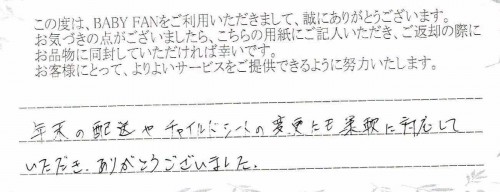 この度は、BABY FANをご利用いただきまして、誠にありがとうございます。
お気づきの点がございましたら、こちらの用紙にご記入いただき、ご返却の際に
お品物に同封していただければ幸いです。
お客様にとって、よりよいサービスをご提供できるように努力いたします。
年末の配送やチャイルドシートの変更にも柔軟に対応して
いただき、ありがとうございました。